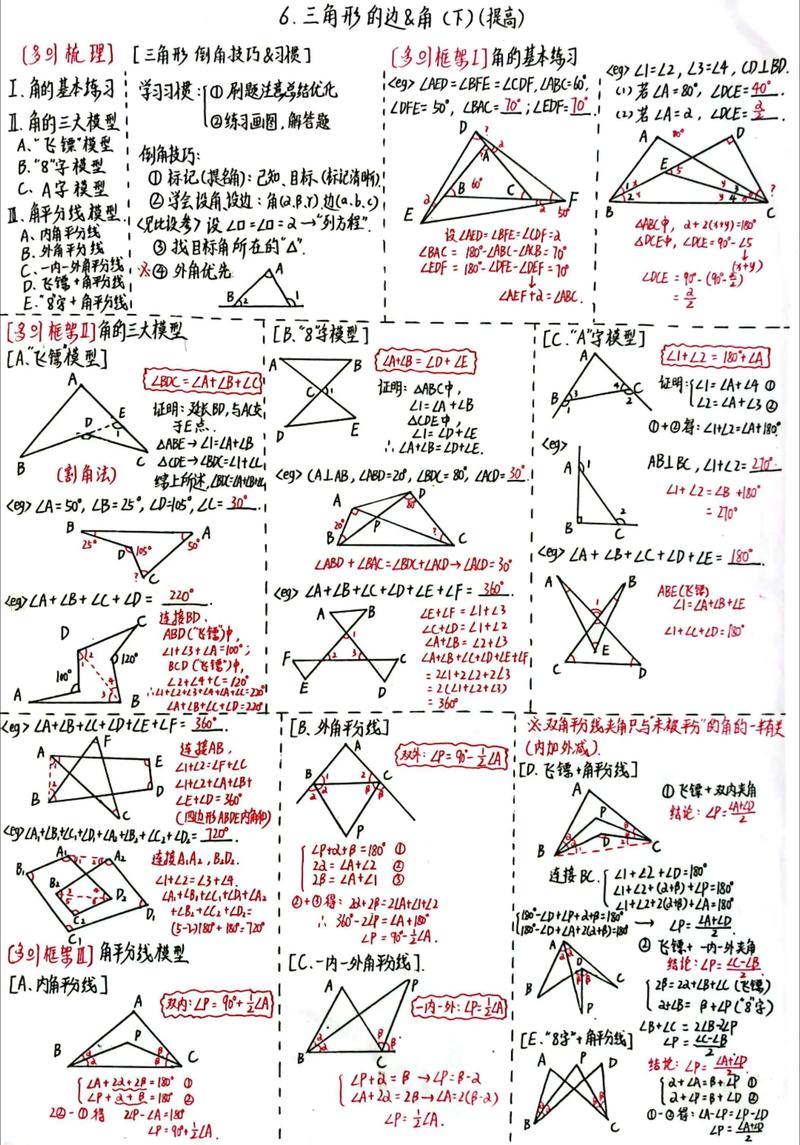 6.三角形的边&角(下)(提高)
[多的梳理]
Ⅰ.角的基本练习
Ⅱ.角的三大模型
A."飞镖"模型
B."8"字模型
C. A字模型
Ⅲ.角平分线模型
A.内角平分线
B.外角平分线
C.一内一外角平分线
D.飞镖+角平分线
E."8"字+角平分线
[三角形 倒角技巧&习惯]
学习习惯:①刷题注意总结优化
②练习画图,解答题
倒角技巧:
①标记(提名角):已知、目标(标记清晰)
②学会设角,设边:角(α,β,γ)边(a.b.c)
设∠□=∠□=α→"列方程".
③找目标角所在的"△".
※④外角优先
A
B
2
1
[多的框架Ⅰ]角的基本练习
<eg>∠AED=∠BFE=∠CDF,∠ABC=60°,
∠DFE=50°,∠BAC=70°;∠EDF=70°.
D
A
B
60°
C
E
F
50°
设∠AED=∠BFE=∠CDF=α
∠BAC=180°-∠ABC-∠ACB=70°
∠EDF=180°-∠DFE-∠DEF=70°
∠AEF+α=∠ABC.
<eg>∠1=∠2,∠3=∠4,CD⊥BD.
(1)若∠A=80°,∠DCE=40°
(2)若∠A=α,∠DCE=α/2.
A
80°
D
E
5
B
C
△ABC中,α+2(x+y)=180°
△DCE中,∠DCE=90°-∠5
(x+y)
∠DCE=90°-(90°-α/2)
=α/2
[多的框架Ⅱ]角的三大模型
[A."飞镖"模型]
∠BDC=∠A+∠B+∠C
A
D
E
B
C
(割角法)
证明:延长BD,与AC交
于E点.
△ABE→∠1=∠A+∠B
△CDE→∠BDC=∠1+∠C
综上所述,∠BDC=∠A+∠B+∠C
<eg>∠A=50°,∠B=25°,∠D=105°,∠C=30°.
B
A
25°
D
105°
50°
C
<eg>∠A+∠B+∠C+∠D=220°
D
C
100°
120°
A
B
连接BD.
ABD("飞镖")中,
∠1+∠3+∠A=100°;
BCD("飞镖")中,
∠2+∠4+C=120°
∴∠1+∠2+∠3+∠4+∠A+∠C=220°
∠A+∠B+∠C+∠D=220°
[B."8"字模型]
∠A+∠B=∠D+∠E
A
B
C
1
D
E
证明:△ABC中,
∠1=∠A+∠B
△CDE中,
∠1=∠D+∠E
∴∠A+∠B=∠D+∠E.
<eg>CA⊥AB,∠ABD=20°,∠BDC=80°,∠ACD=30°.
A
D
80°
20°
P
B
C
∠ABD+∠BAC=∠BDC+∠ACD→∠ACD=30°
<eg>∠A+∠B+∠C+∠D+∠E+∠F=360°
A
B
F
C
E
D
∠E+∠F=∠1+∠3
∠C+∠D=∠1+∠2
∠A+∠B=∠2+∠3
∠A+∠B+∠C+∠D+∠E+∠F
=2∠1+2∠2+2∠3
=2(∠1+∠2+∠3)
=360°
[C."A"字模型]
∠1+∠2=180°+∠A
A
B
3
1
4
C
2
证明:∠1=∠A+∠4 ①
∠2=∠A+∠3 ②
①+②得:∠1+∠2=∠A+180°
<eg>
A
1
B
C
2
AB⊥BC,∠1+∠2=270°.
∠1+∠2=∠B+180°
=270°
<eg>∠A+∠B+∠C+∠D+∠E=180°.
A
B
E
C
D
ABE(飞镖)
∠1=∠A+∠B+∠E
∠1+∠C+∠D=180°
<eg>∠A+∠B+∠C+∠D+∠E+∠F=360°.
F
A
E
B
D
C
连接AB,
∠1+∠2=∠F+∠C
∠1+∠2+∠A+∠B+
∠E+∠D=360°
(四边形ABDE内角和)
<eg>∠A₁+∠B₁+∠C₁+∠D₁+∠A₂+∠B₂+∠C₂+∠D₂=720°
A₁
A₂
B₁
B₂
D₂
C₂
D₁
C₁
连接A₁A₂,B₂D₂.
∠1+∠2=∠3+∠4.
∠A₁+∠B₁+∠C₁+∠D₁+∠A₂
+∠B₂+∠C₂+∠D₂=
(5-2)180°+180°=720°
[多的框架Ⅲ]角平分线模型
[A.内角平分线]
双内:∠P=90°+½∠A
A
P
B
C
∠A+2α+2β=180° ①
∠P+α+β=180° ②
2②-①得 2∠P-∠A=180°
∠P=90°+½∠A.
[B.外角平分线]
双外:∠P=90°-½∠A
A
B
1
2
C
P
∠P+α+β=180° ①
2α=∠A+∠2 ②
2β=∠A+∠1 ③
②+③得:2α+2β=2∠A+∠1+∠2
∴360°-2∠P=∠A+180°
∠P=90°-½∠A.
[C.一内一外角平分线].
一内一外:∠P=½∠A
A
P
B
C
∠P+α=β→∠P=β-α
∠A+2α=2β→∠A=2(β-α)
∠P=½∠A.
※双角平分线夹角只与"未被平分"的角的一半有关
(内加外减).
[D.飞镖+角平分线]
①飞镖+双内夹角
结论:∠P=(∠A+∠D)/2
A
P
D
B
C
连接BC.
∠1+∠2+∠D=180°
∠1+∠2+(α+β)+∠P=180°
∠1+∠2+2(α+β)+∠A=180°
180°-∠D+∠P+α+β=180°
180°-∠D+∠A+2(α+β)=180°
→∠P=(∠A+∠D)/2
②飞镖+一内一外夹角
结论:∠P=(∠C-∠B)/2
A
D
B
C
P
2β=2α+∠B+∠C(飞镖)
α+∠B=β+∠P("8"字)
∠B+∠C=2∠B-2∠P
∠P=(∠C-∠B)/2
[E."8字"+角平分线]
结论:∠P=(∠A+∠D)/2
A
P
D
B
C
α+∠A=β+∠P ①
α+∠P=β+∠D ②
①-②得:∠A-∠P=∠P-∠D
∠P=(∠A+∠D)/2